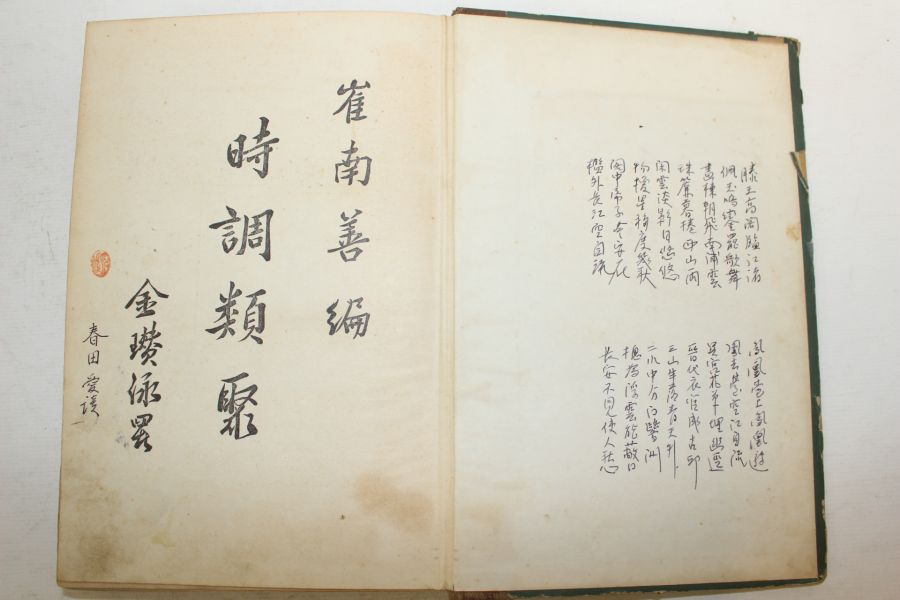 滕王高閣臨江渚
佩玉鳴鑾罷歌舞
畫棟朝飛南浦雲
珠簾暮捲西山雨
閑雲淡影日悠悠
物換星移度幾秋
閣中帝子今安在
檻外長江空自流
鳳凰臺上鳳凰遊
鳳去臺空江自流
吳宮花草埋幽逕
晉代衣冠成古邱
三山半落青天外
二水中分白鷺洲
總爲浮雲能蔽日
長安不見使人愁
崔南善編
時調類聚
金瓚泳署
春田愛讀